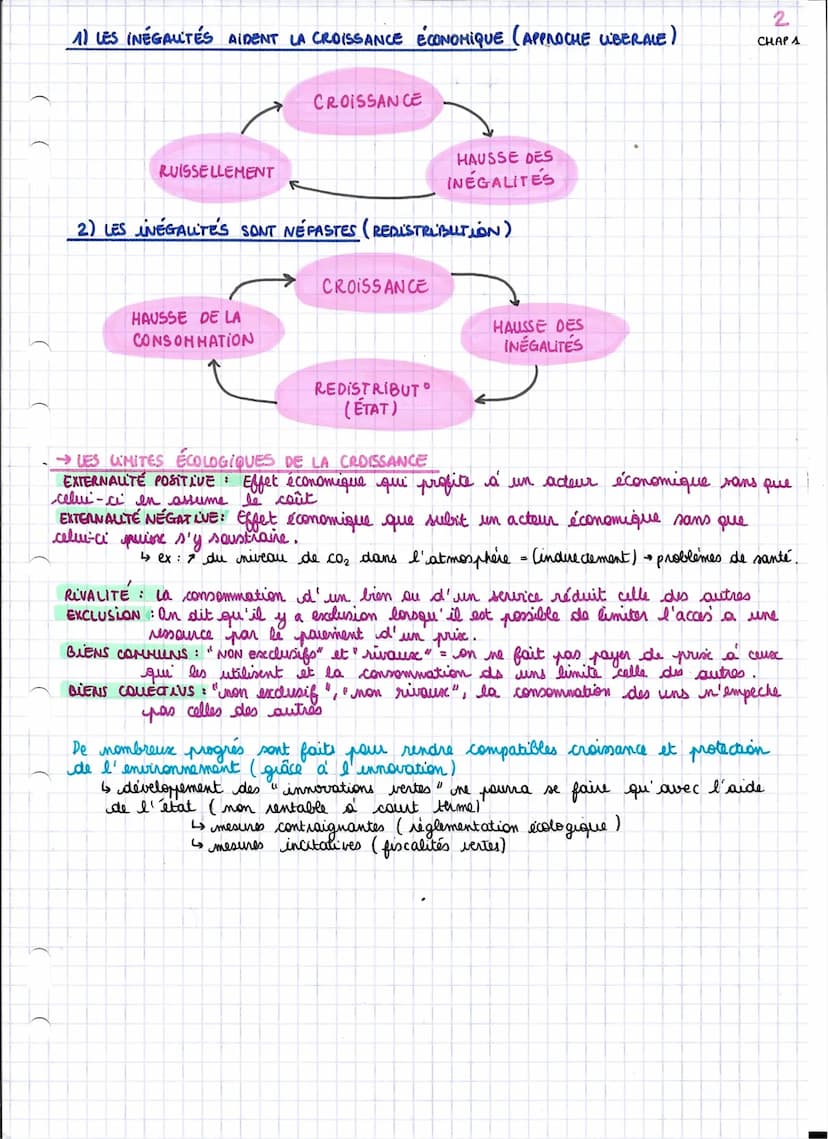 2
CHAP 1
1) LES INÉGALITÉS AIDENT LA CROISSANCE ÉCONOMIQUE (APPROCHE LIBERALE)
CROISSANCE
RUISSELLEMENT
HAUSSE DES
INÉGALITÉS
2) LES INÉGALITÉS SONT NÉFASTES (REDISTRIBUTION)
CROISSANCE
HAUSSE DE LA
CONSOMMATION
HAUSSE DES
INÉGALITÉS
REDISTRIBUT°
(ÉTAT)
→ LES LIMITES ÉCOLOGIQUES DE LA CROISSANCE
EXTERNALITÉ POSITIVE : Effet économique qui profite à un acteur économique sans que
celui-ci en assume le coût
EXTERNALITÉ NÉGATIVE : Effet économique que subit un acteur économique sans que
celui-ci puisse s'y soustraire.
↳ ex : ↗ du niveau de CO2 dans l'atmosphère = (indirectement) → problèmes de santé.
RIVALITÉ : La consommation d'un bien ou d'un service réduit celle des autres
EXCLUSION : On dit qu'il y a exclusion lorsqu'il est possible de limiter l'accès a une
ressource par le paiement d'un prix.
BIENS COMMUNS : "NON exclusifs" et "rivaux" = on ne fait pas payer de prix à ceux
qui les utilisent et la consommation ds uns limite celle des autres.
BIENS COLLECTIVS : "non exclusif", "non rivaux", la consommation des uns n'empeche
pas celles des autres
De nombreux progrés sont faits pour rendre compatibles croissance et protection
de l'environnement (grâce à l'innovation)
↳ développement des "innovations vertes" ne pourra se faire qu'avec l'aide
de l'état (non rentable à court terme)
↳ mesures contraignantes (règlementation écologique)
↳ mesures incitatives (fiscalités vertes)